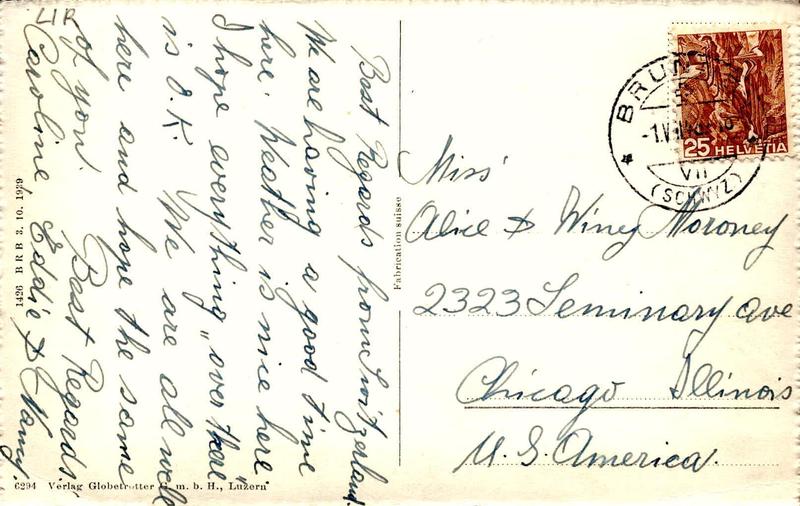 LIR
Best Regards from Switzerland.
We are having a good time
here. Weather is nice here
I hope everything "over there"
is O.K. We are all well
here and hope the same
of you. Best Regards.
Caroline Eddie & Nanny.
1426 BRB 3. 10. 1929
6294 Verlag Globetrotter G. m. b. H., Luzern
Fabrication suisse
HELVETIA
25
-1.VIII
VII
(SCHWYZ)
Miss'
Alice & Winey Moroney
2323 Seminary Ave
Chicago Illinois
U.S. America.